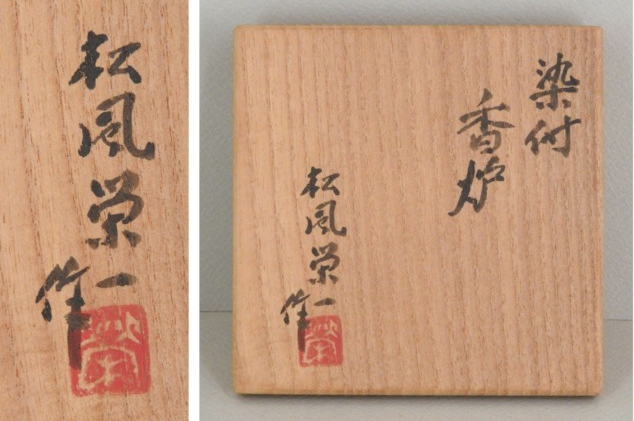 松風栄一
作
染付
香炉
松風栄一
作
栄